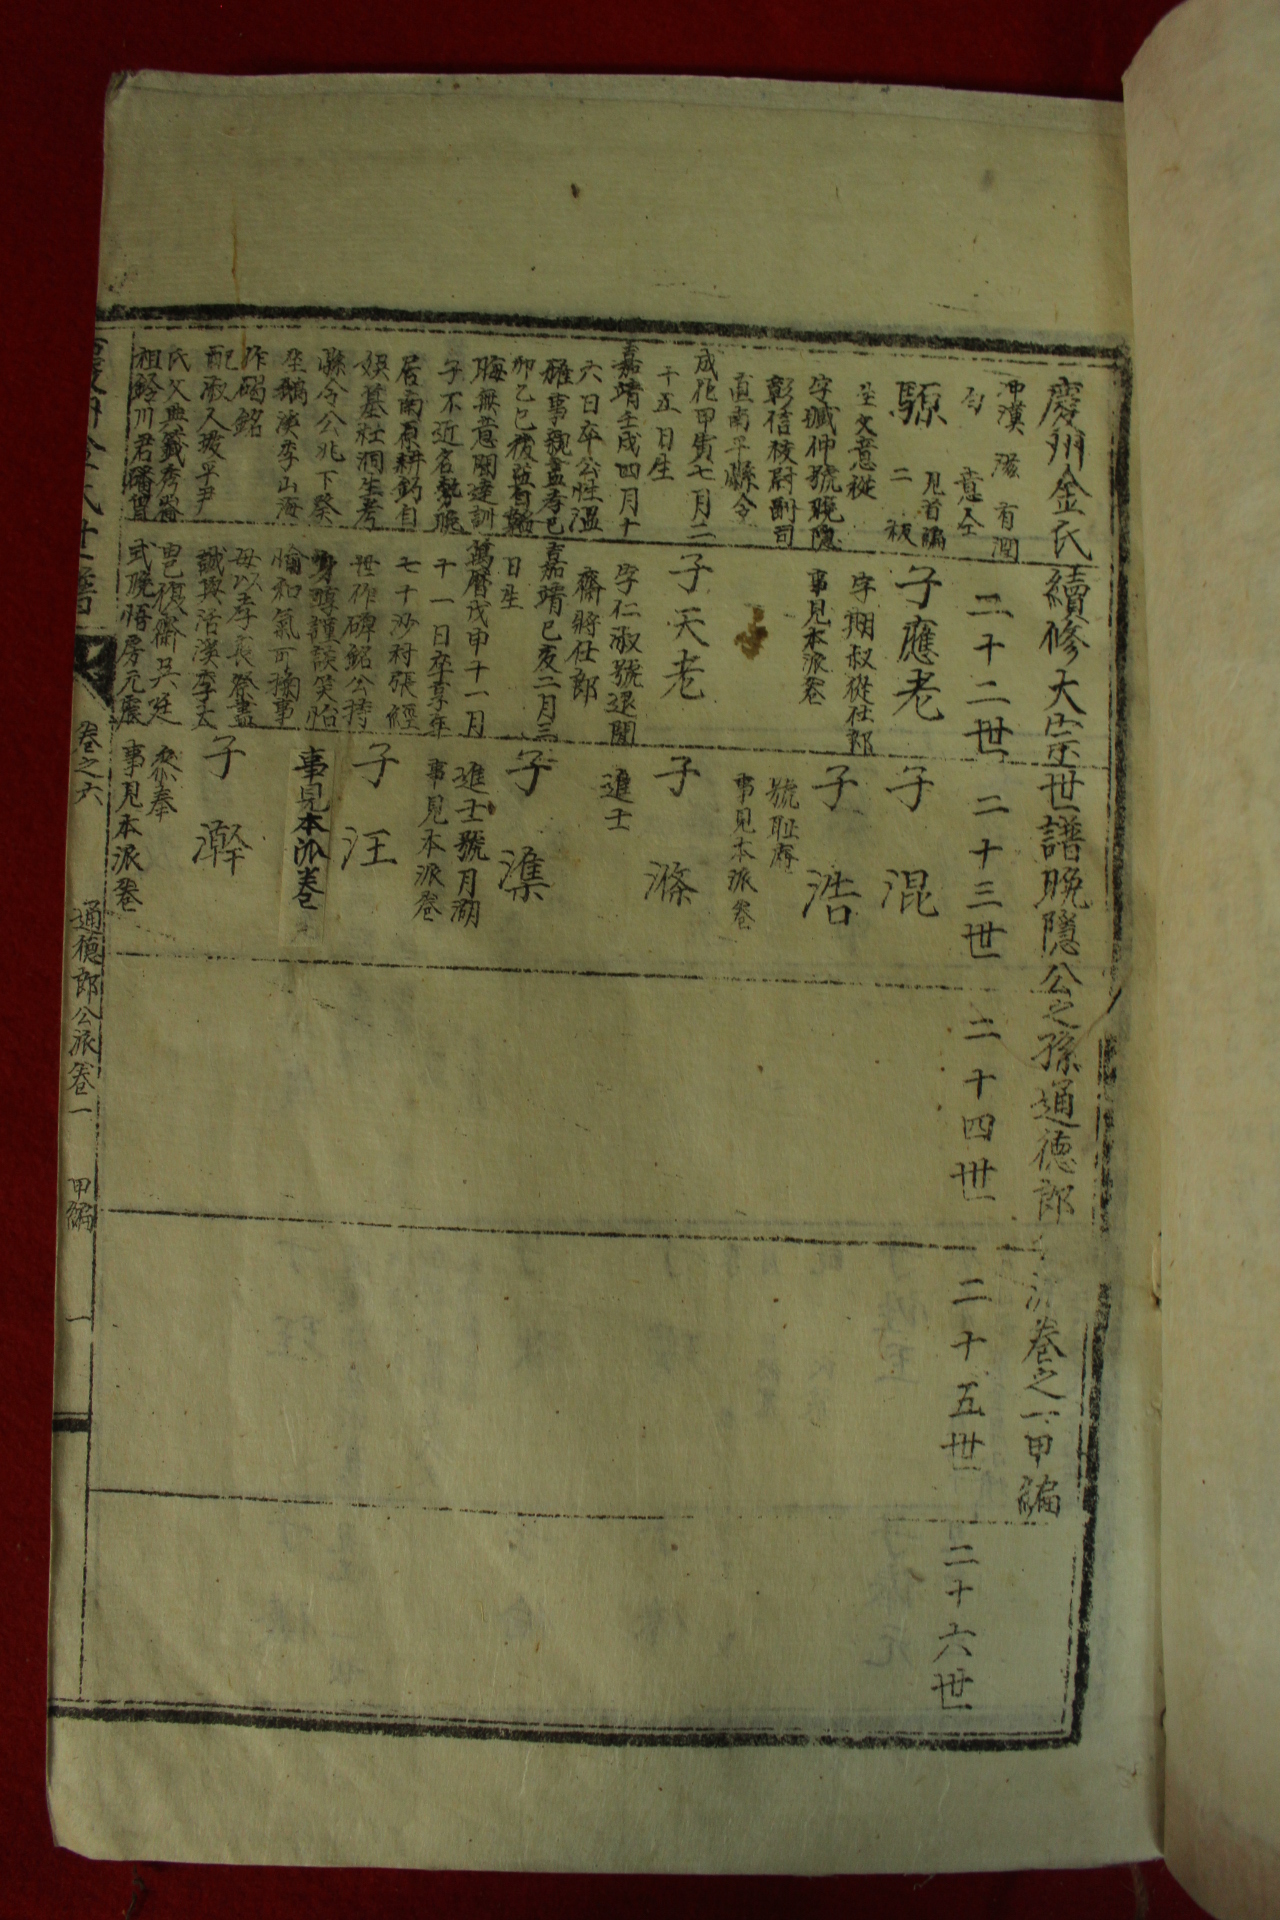 慶州金氏續修大宗世譜晩隱公之孫通德郎公派卷之一甲編
冲漢 滋 有潤
二十二世
二十三世
二十四世
二十五世
二十六世
騵
見首編二板
字纘仲號晩隱
彰信校尉副司
直南平縣令
成化甲寅七月二
十五日生
嘉靖壬戌四月十
六日卒公性溫
雅事親盡孝己
卯乙巳後益自韜
晦無意聞達訓
子不近名勢晩
居南原耕釣自
娛墓社洞生考
縣令公兆下癸
坐鵝溪李山海
作碣銘
配淑人坡平尹
氏父典籤秀崙
祖鈴川君
子應老
字期叔從仕郎
事見本派卷
子天老
字仁淑號退閒
齋將仕郎
嘉靖己亥二月三
日生
萬曆戊申十一月
十一日卒享年
七十沙村張經
世作碑銘公持
身醇謹談笑怡
愉和氣可掬事
母以孝喪祭盡
誠與活溪李大
𦙍復齋吳廷
式晩悟房元震
子 混
子 浩
號耻庵
事見本派卷
子 滌
進士
子 潗
進士號月湖
事見本派卷
子 汪
事見本派卷
子 澣
叅奉
事見本派卷
慶州金氏世譜
卷之六
通德郎公派卷一
甲編
一